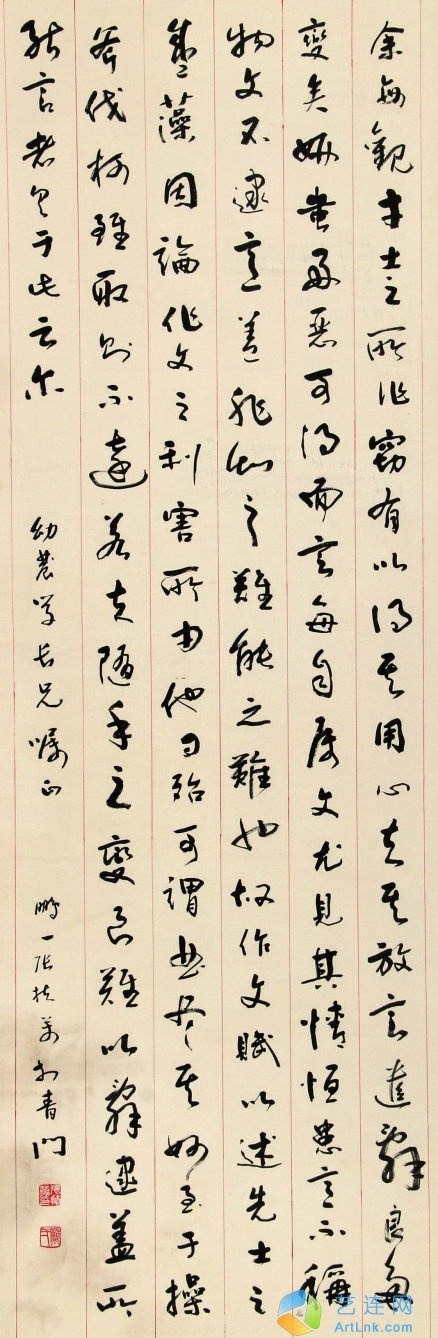 余每觀才士之所作竊有以得其用心夫其放言遣辭良多
變矣妍蚩好惡可得而言每自屬文尤見其情恒患意不稱
物文不逮意蓋非知之難能之難也故作文賦以述先士之
盛藻因論作文之利害所由他日殆可謂曲盡其妙至于操
斧伐柯雖取則不遠若夫隨手之變良難以辭逮蓋所
能言者具于此云尔
幼農學長兄囑正
鵬一張扶萬於青門
艺连网
ArtLnk.com